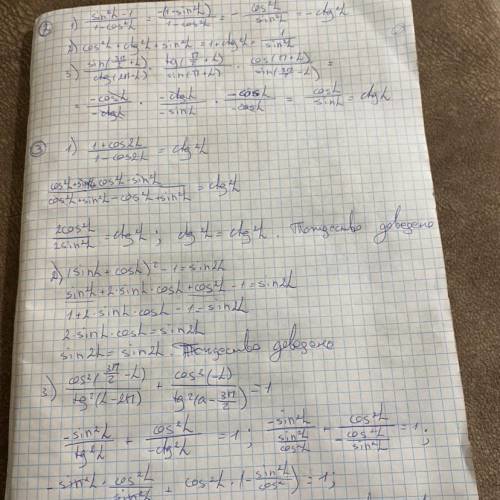 ② 1) (sin²α - 1)/(1 - cos²α) = -(1 - sin²α)/(1 - cos²α) = - cos²α/sin²α = - ctg²α
2) cos²α + ctg²α + sin²α = 1 + ctg²α = 1/sin²α
3) sin(3π/2 + α)/ctg(2π - α) · tg(π/2 + α)/sin(π + α) · cos(π + α)/sin(3π/2 + α) =
= -cosα/-ctgα · -ctgα/-sinα · -cosα/-cosα = cosα/sinα = ctgα
③ 1) (1 + cos2α)/(1 - cos2α) = ctg²α
(cos²α + sin²α + cos²α - sin²α)/(cos²α + sin²α - cos²α + sin²α) = ctg²α
2cos²α/2sin²α = ctg²α; ctg²α = ctg²α. Тождество доведено
2) (sinα + cosα)² - 1 = sin2α
sin²α + 2·sinα·cosα + cos²α - 1 = sin2α
1 + 2·sinα·cosα - 1 = sin2α
2·sinα·cosα = sin2α
sin2α = sin2α. Тождество доведено
3) cos²(3π/2 - α)/tg²(α - 2π) + cos²(-α)/tg²(α - 3π/2) = 1
-sin²α/tg²α + cos²α/-ctg²α = 1; -sin²α/(sin²α/cos²α) + cos²α/(-cos²α/sin²α) = 1;
- sin²α · cos²α/sin²α + cos²α · (- sin²α/cos²) = 1;